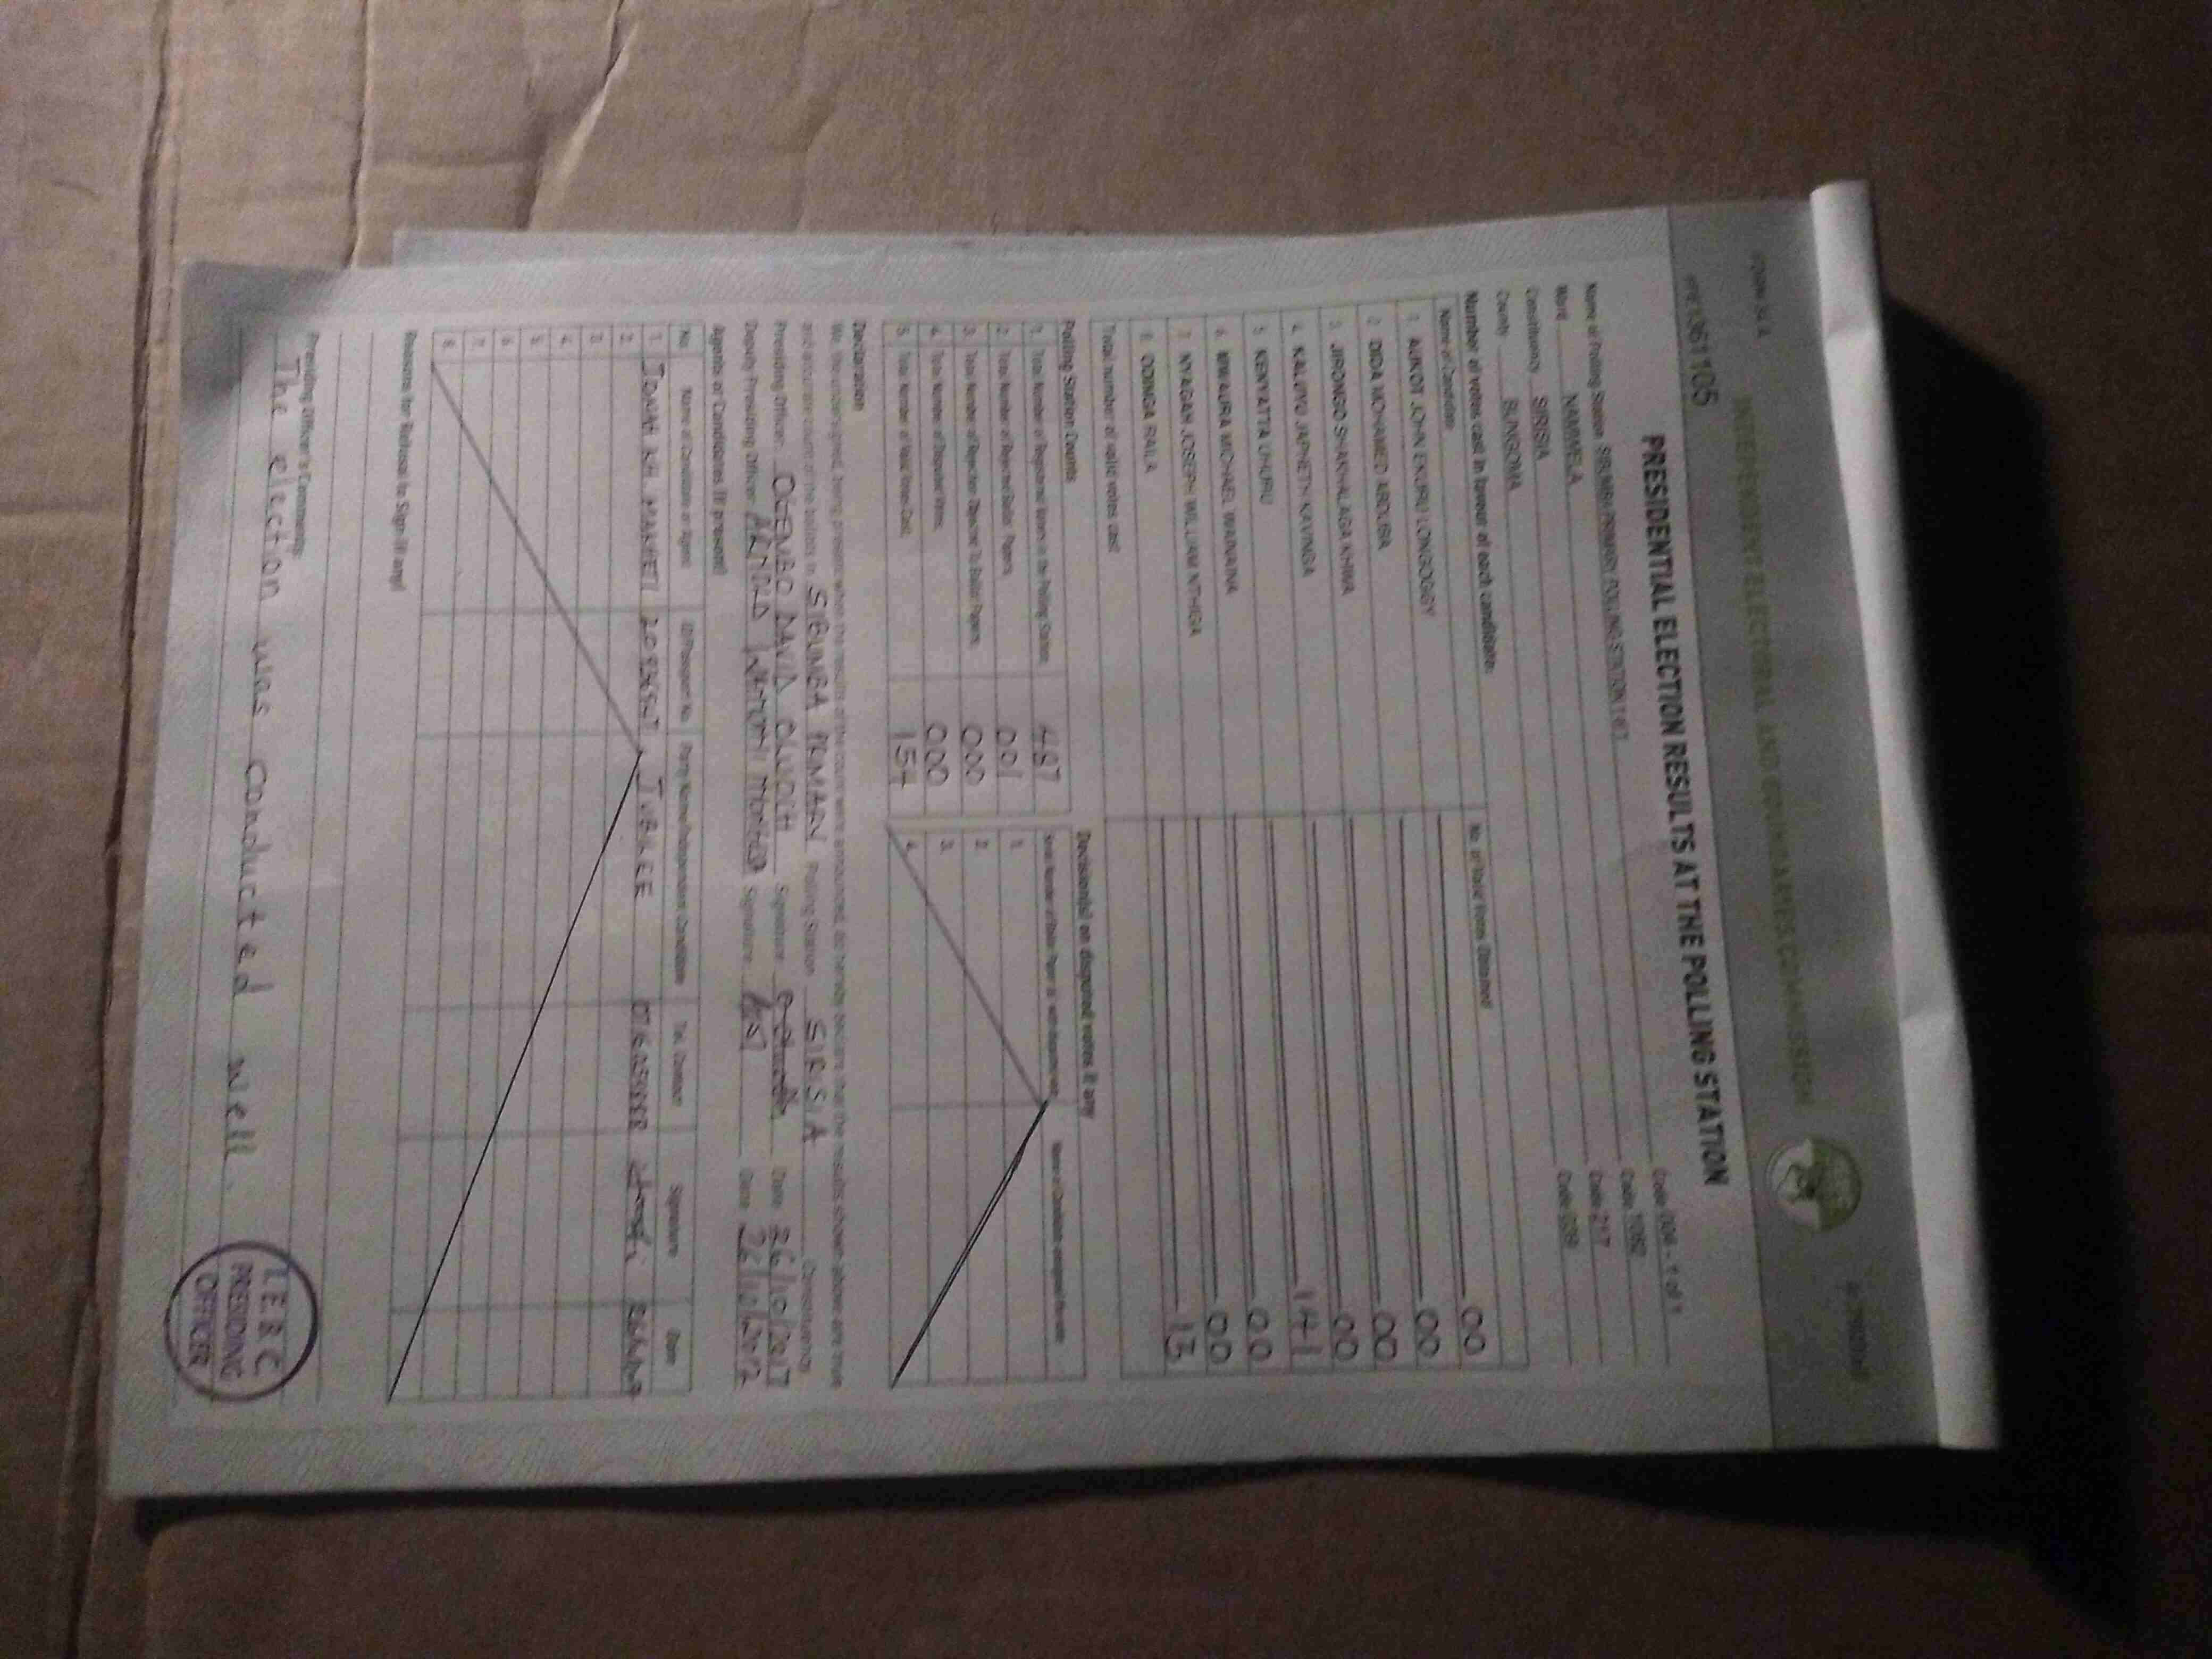 FORM 34 A
INDEPENDENT ELECTORAL AND BOUNDARIES COMMISSION
PRESIDENTIAL ELECTION RESULTS AT THE POLLING STATION
Name of Polling Station PRIMARY POLLING STATION Code 004 - 1 of 1
Ward NAMWELA Code 1082
Constituency SIRISIA Code 217
County BUNGOMA Code 039
Number of votes cast in favour of each candidate:
Name of Candidate No. of Valid Votes Obtained
1. AUKOT JOHN EKURU LONGOGGY 00
2. DIDA MOHAMED ABDUBA 00
3. JIRONGO SHAKHALAGA KHWA 00
4. KALUYU JAPHETH KAVINGA 00
5. KENYATTA UHURU 141
6. MWAURA MICHAEL WAINAINA 00
7. NYAGAH JOSEPH WILLIAM NTHIGA 00
8. ODINGA RAILA 13
Total number of valid votes cast
Polling Station Counts
1. Total Number of Registered Voters in the Polling Station 487
2. Total Number of Rejected Ballot Papers 001
3. Total Number of Rejection Objected To Ballot Papers 000
4. Total Number of Disputed Votes 000
5. Total Number of Valid Votes Cast 154
Decision(s) on disputed votes if any
Serial Number of Ballot Paper Name of Candidate
1.
2.
3.
4.
Declaration
We, the undersigned, being present when the results of the count were announced, do hereby declare that the results shown above are true
and accurate count of the ballots in Polling Station SIRISIA Constituency
Presiding Officer: OGEMBO DAVID OLUOCH Signature Date 26/10/2017
Deputy Presiding Officer: Signature Date
Agents or Candidates (if present)
No. Name of Candidate or Agent ID/Passport No. Party Name/Independent Candidate Tel. Contact Signature Date
1. JUBILEE
2.
3.
4.
5.
6.
7.
8.
Reasons for Refusal to Sign (if any)
Presiding Officer's Comments:
The election was conducted well.
I.E.B.C
PRESIDING
OFFICER